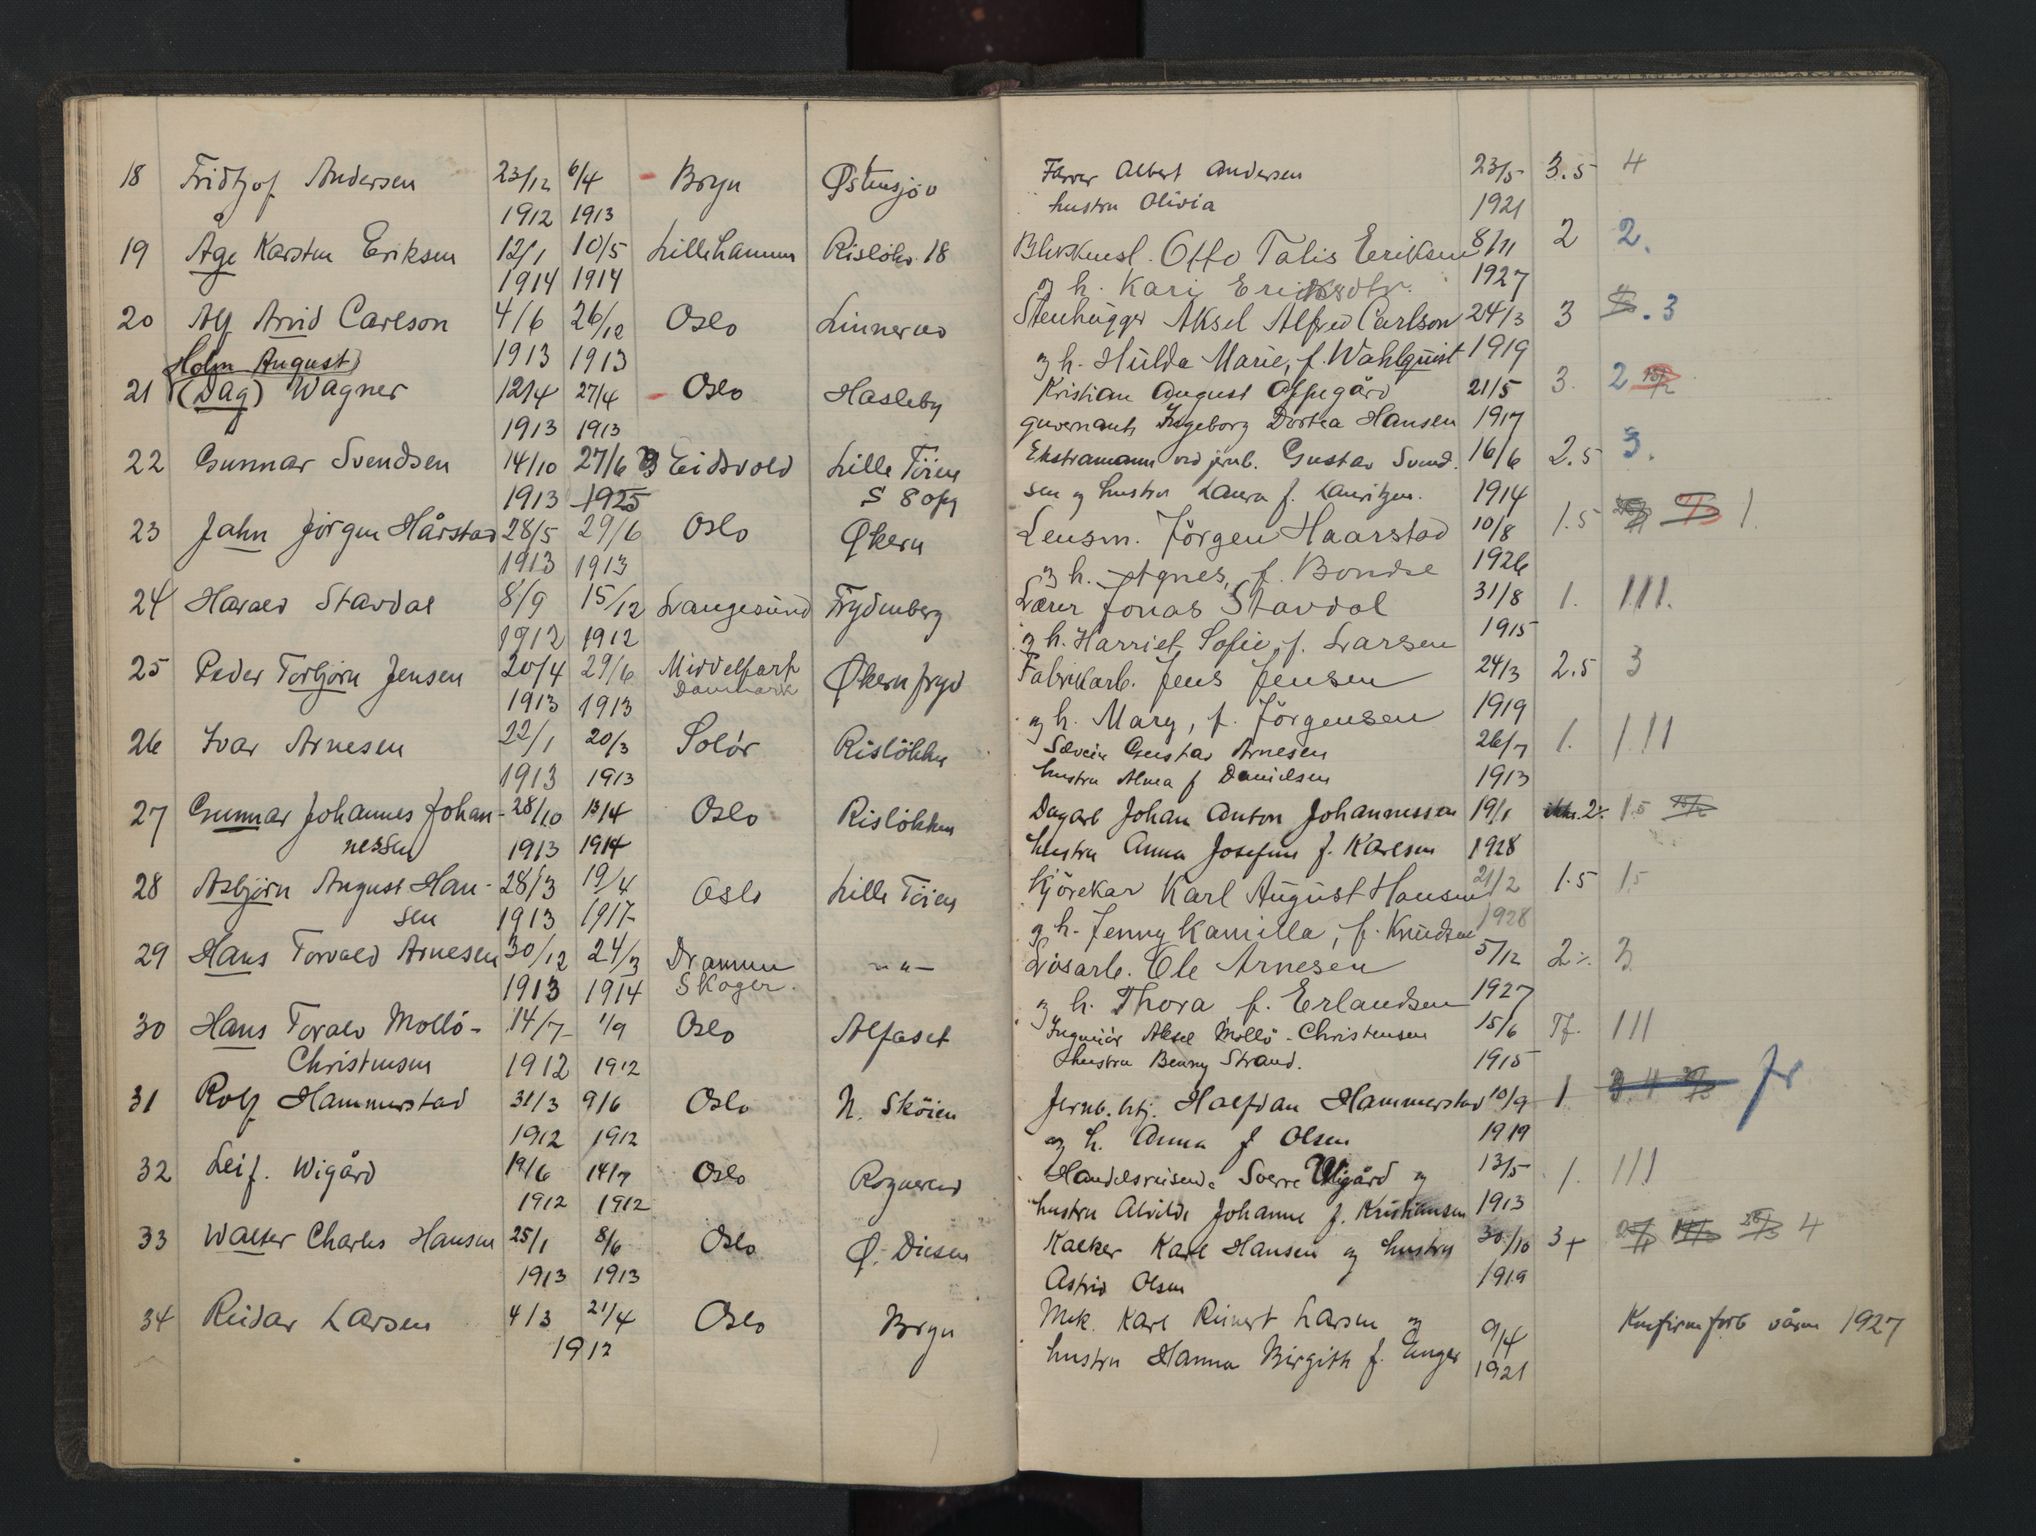 18 Fridtjof Andersen 23/12 6/4 Bryn Østensjøv Farver Albert Andersen 23/5 3.5 4
1912 1913 hustru Olivia 1921
19 Åge Karsten Eriksen 12/1 10/5 Lillehammer Risløkv. 18 Otto Talis Eriksen 8/11 2 2.
1914 1914 og h. Kari 1927
20 Alf Arvid Carlson 4/6 26/12 Oslo Linnerud Stenhugger Aksel Alfred Carlson 24/3 3 . 3
Holm August 1913 1913 og h. Hulda Marie, f. Wahlquist 1919
21 (Dag) Wagner 12/4 27/4 Oslo Hasleby Kristian August Oppegård 21/5 3. 2
1913 1913 guvernante Ingeborg Dortea Hansen 1917
22 Gunnar Svendsen 14/10 27/6 Eidsvold Lille Töien Ekstramann ved jernb. Gustav Svend- 16/6 2.5 3.
1913 1925 S 8 opg sen og hustru Laura f. Lauritzen. 1914
23 Jahn Jörgen Hårstad 28/5 29/6 Oslo Økern Lensm. Jörgen Haarstad 10/8 1.5 1.
1913 1913 og h. Agnes, f. Bondse 1926
24 Harald Stavdal 8/9 15/12 Langesund Frydenberg Lærer Jonas Stavdal 31/8 1. 111.
1912 1912 og h. Harriet Sofie, f. Larsen 1915
25 Peder Torbjörn Jensen 20/4 29/6 Middelfart Økernfryd Fabrikarb. Jens Jensen 24/3 2.5 3
Danmark
1913 1913 og h. Mary, f. Jörgensen 1919
26 Ivar Arnesen 22/1 20/3 Solör Rislökken Gustav Arnesen 26/7 1. 111
1913 1913 hustru Alma f Danielsen 1913
27 Gunnar Johannes Johan- 28/10 13/4 Oslo Rislökken Dagarb Johan Anton Johannessen 19/1 2 1.5
nessen 1913 1914 hustru Anna Josefine f. Karlsen 1928
28 Asbjörn August Han- 28/3 19/4 Oslo Lille Töien Kjörekar Karl August Hansen 21/2 1.5 1.5
sen 1913 1917 og h. Jenny Kamilla, f. Knudsen 1928
29 Hans Torvald Arnesen 30/12 24/3 Drammen -"- Lösarb. Ole Arnesen 5/12 2 3
1913 1914 Skoger. og h. Thora f. Erlandsen 1927
30 Hans Torald Mollö- 14/7 1/9 Oslo Alfaset Ingeniör Aksel Mollö-Christensen 15/6 Tf. 111
Christensen 1912 1912 hustru Benny Strand. 1915
31 Rolf Hammerstad 31/3 9/6 Oslo N. Sköien Jernb. btj. Halfdan Hammerstad 10/9 1
1912 1912 og h. Anna f Olsen 1919
32 Leif. Wigård 19/6 14/7 Oslo Rognerud Handelsreisende Sverre Wigård og 13/5 1. 111
1912 1912 hustru Alvilde Johanne f. Kristiansen 1913
33 Walter Charles Hansen 25/1 8/6 Oslo Ø. Disen Kalker Karl Hansen og hustru 30/10 3+ 4
1913 1913 Astrid Olsen 1919
34 Reidar Larsen 4/3 21/4 Oslo Bryn Mek. Karl Reinert Larsen og 9/4 Konfirm forb våren 1927
1912 hustru Hanna Birgith f. Enger 1921